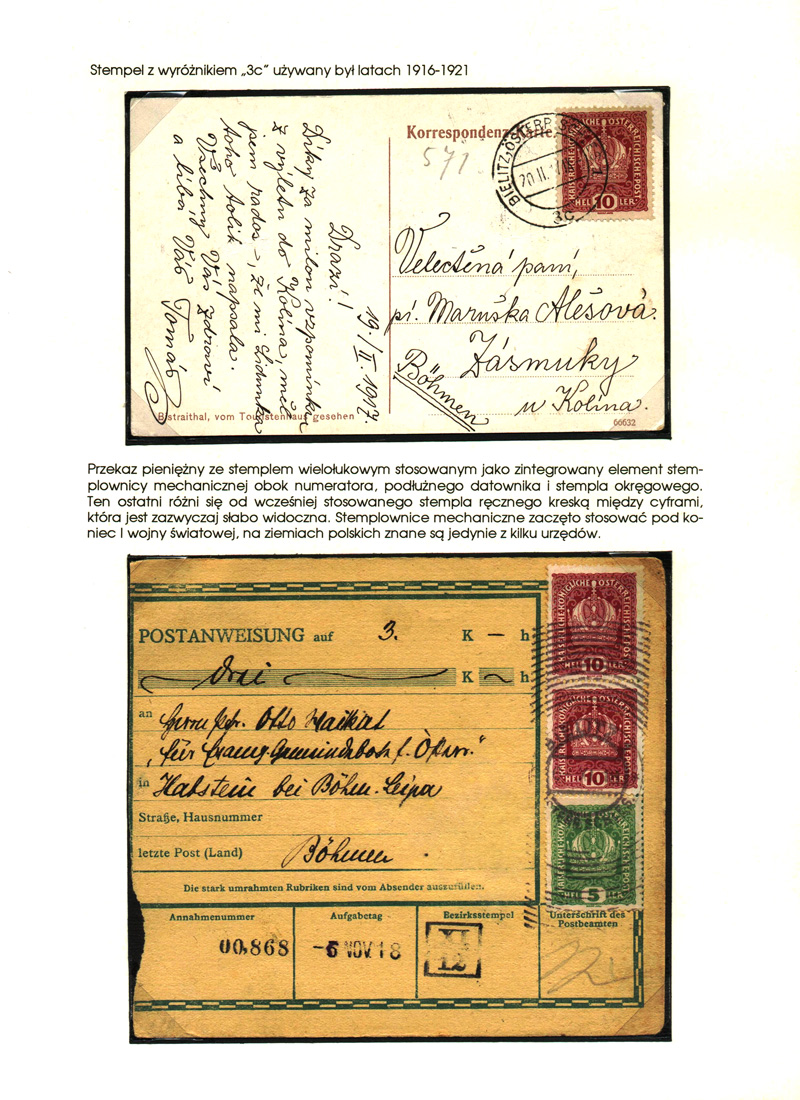 Stempel z wyróżnikiem „3c” używany był latach 1916-1921
Drazí! 19./II. 1917.
Díky za milou vzpomínku
z výletu do Kolína, měl
jsem rados-, že mi Lidunka
toho tolik napsala.
Všechny Vás zdraví
a líbá Vás Tomáš
Bistraithal, vom Touristenhaus gesehen
Korrespondenz-Karte
571
BIELITZ, ÖSTERR.
20.II.17
3c
KAISERLICHE KÖNIGLICHE ÖSTERREICHISCHE POST
HELLER
10
Velectěná paní,
pí. Maruška Alešová.
Zásmuky
u Kolína.
Böhmen
66632
Przekaz pieniężny ze stemplem wielołukowym stosowanym jako zintegrowany element stem-
plownicy mechanicznej obok numeratora, podłużnego datownika i stempla okręgowego.
Ten ostatni różni się od wcześniej stosowanego stempla ręcznego kreską między cyframi,
która jest zazwyczaj słabo widoczna. Stemplownice mechaniczne zaczęto stosować pod ko-
niec I wojny światowej, na ziemiach polskich znane są jedynie z kilku urzędów.
POSTANWEISUNG auf 3. K — h
drei K ~ h
an Herrn Otto
in Habstein bei Böhm. Leipa
Straße, Hausnummer
letzte Post (Land) Böhmen .
Die stark umrahmten Rubriken sind vom Absender auszufüllen.
Annahmenummer
00,868
Aufgabetag
-6 NOV. 18
Bezirksstempel
XI
12
Unterschrift des
Postbeamten
KAISERLICHE KÖNIGLICHE ÖSTERREICHISCHE POST
HELLER
10
KAISERLICHE KÖNIGLICHE ÖSTERREICHISCHE POST
HELLER
10
5